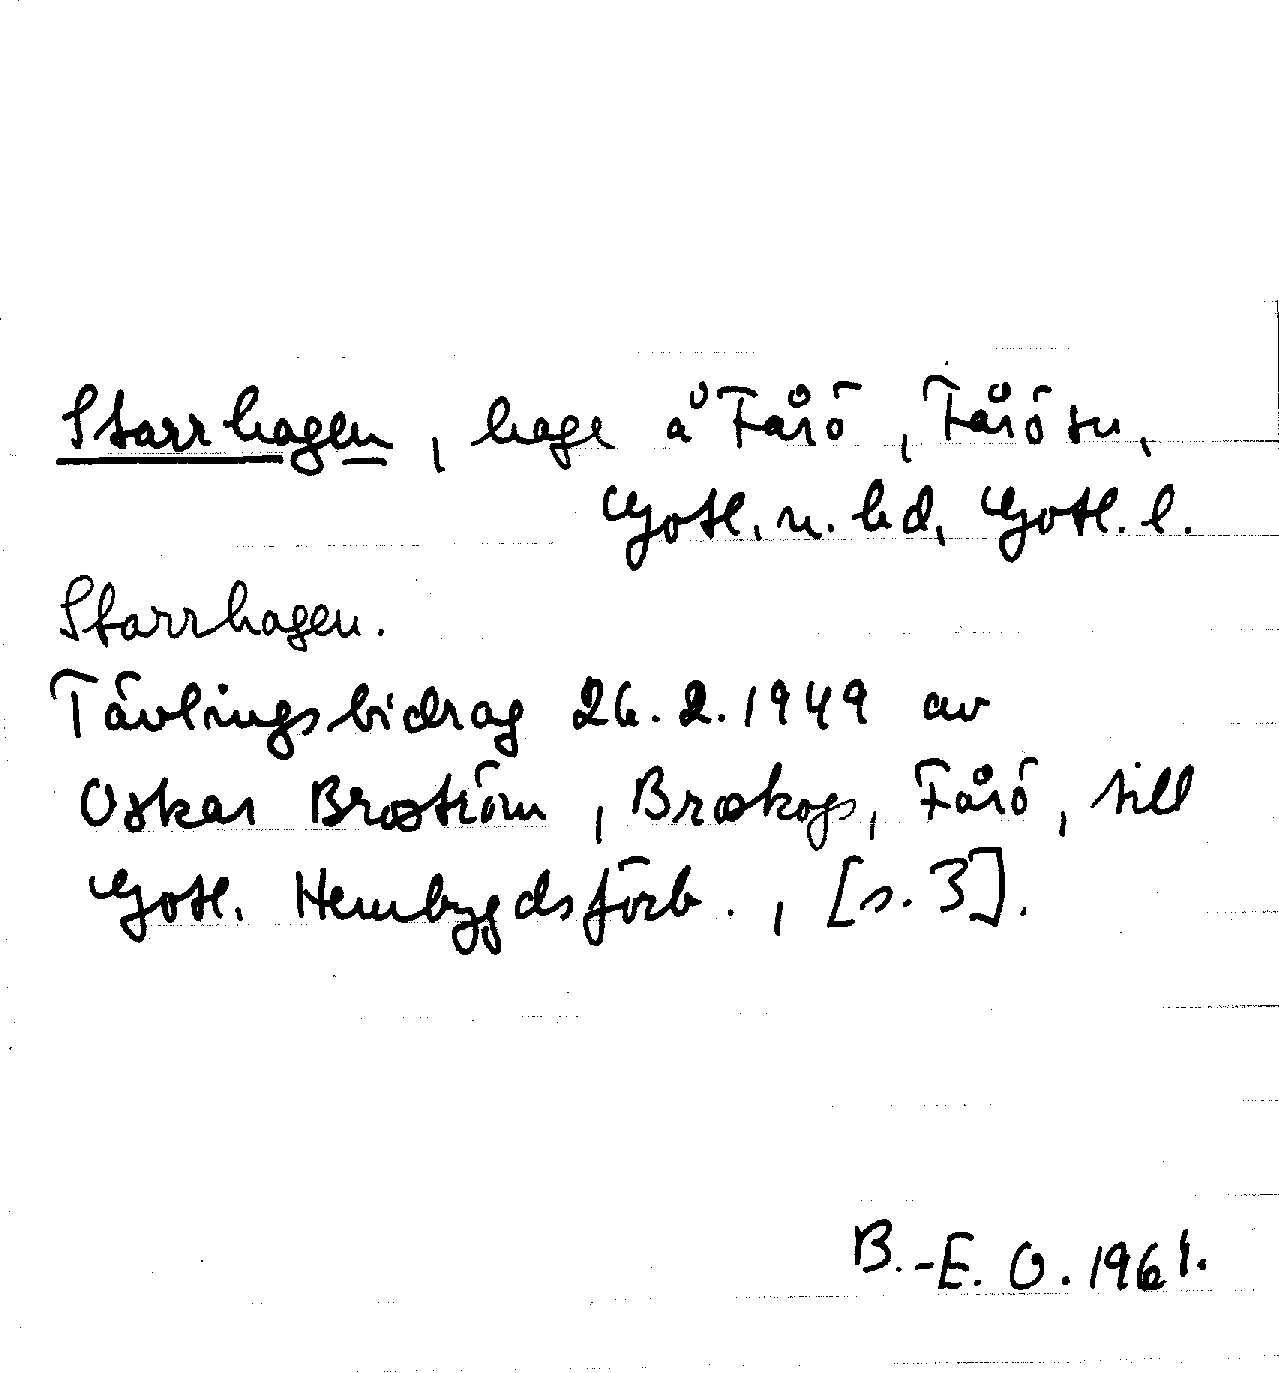 Starrhagen, hage å Fårö, Fårö sn,
Gotl. n. hd, Gotl. l.
Starrhagen.
Tävlingsbidrag 26.2.1949 av
Oskar Broström, Broskogs, Fårö, till
Gotl. Hembygdsförb., [s. 3].
B.-E. O. 1961.